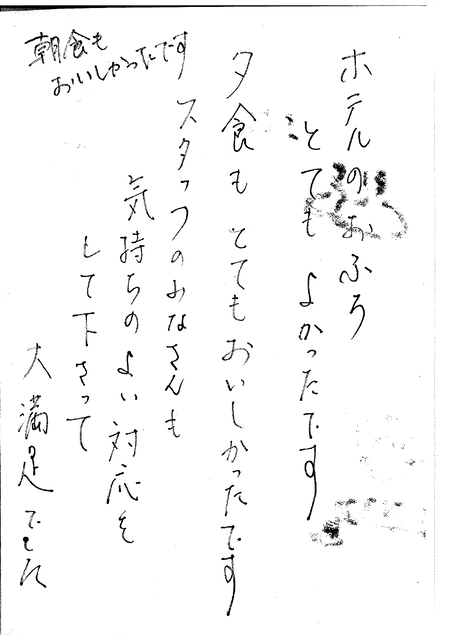 ホテルのおふろ
とてもよかったです
夕食もとてもおいしかったです
スタッフのみなさんも
気持ちのよい対応を
して下さって
大満足でした
朝食も
おいしかったです